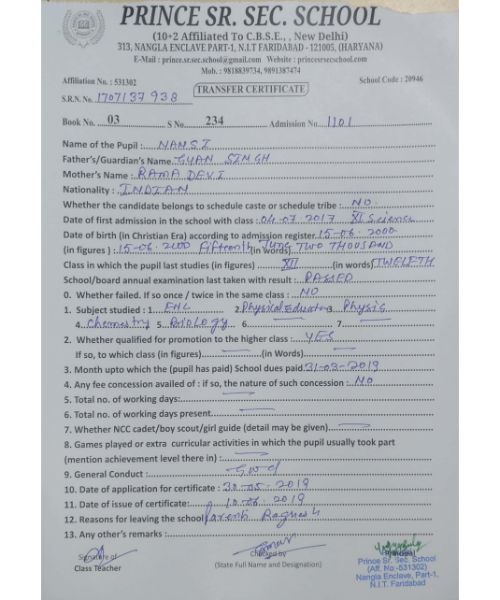 PRINCE SR. SEC. SCHOOL
(10+2 Affiliated To C.B.S.E., New Delhi)
313, NANGLA ENCLAVE PART-1, N.I.T FARIDABAD - 121005, (HARYANA)
E-Mail : prince.sr.sec.school@gmail.com Website : princesrsecschool.com
Mob. : 9818839734, 9891387474
Affiliation No. : 531302
School Code : 20946
TRANSFER CERTIFICATE
S.R.N. No. 1707137938
Book No. 03 S No 234 Admission No. 1101
Name of the Pupil : NANSI
Father's/Guardian's Name GYAN SINGH
Mother's Name : RAMA DEVI
Nationality : INDIAN
Whether the candidate belongs to schedule caste or schedule tribe : NO
Date of first admission in the school with class : 04-07-2017 XI Science
Date of birth (in Christian Era) according to admission register 15-06-2000
(in figures) : 15-06-2000 Fifteenth June Two THOUSAND (in words)
Class in which the pupil last studies (in figures) XII (in words) TWELFTH
School/board annual examination last taken with result : PASSED
0. Whether failed. If so once / twice in the same class : NO
1. Subject studied : 1. ENG 2. Physical Education 3. Physic
4. Chemistry 5. BIOLOGY 6. 7.
2. Whether qualified for promotion to the higher class : YES
If so, to which class (in figures) (in Words)
3. Month upto which the (pupil has paid) School dues paid 31-03-2019
4. Any fee concession availed of : if so, the nature of such concession : NO
5. Total no. of working days:
6. Total no. of working days present
7. Whether NCC cadet/boy scout/girl guide (detail may be given)
8. Games played or extra curricular activities in which the pupil usually took part
(mention achievement level there in) :
9. General Conduct : Good
10. Date of application for certificate : 30-05-2019
11. Date of issue of certificate: 10-06-2019
12. Reasons for leaving the school Parents Request
13. Any other's remarks :
Signature of
Class Teacher
Checked by
(State Full Name and Designation)
Principal
Prince Sr. Sec. School
(Aff. No.-531302)
Nangla Enclave, Part-1,
N.I.T. Faridabad